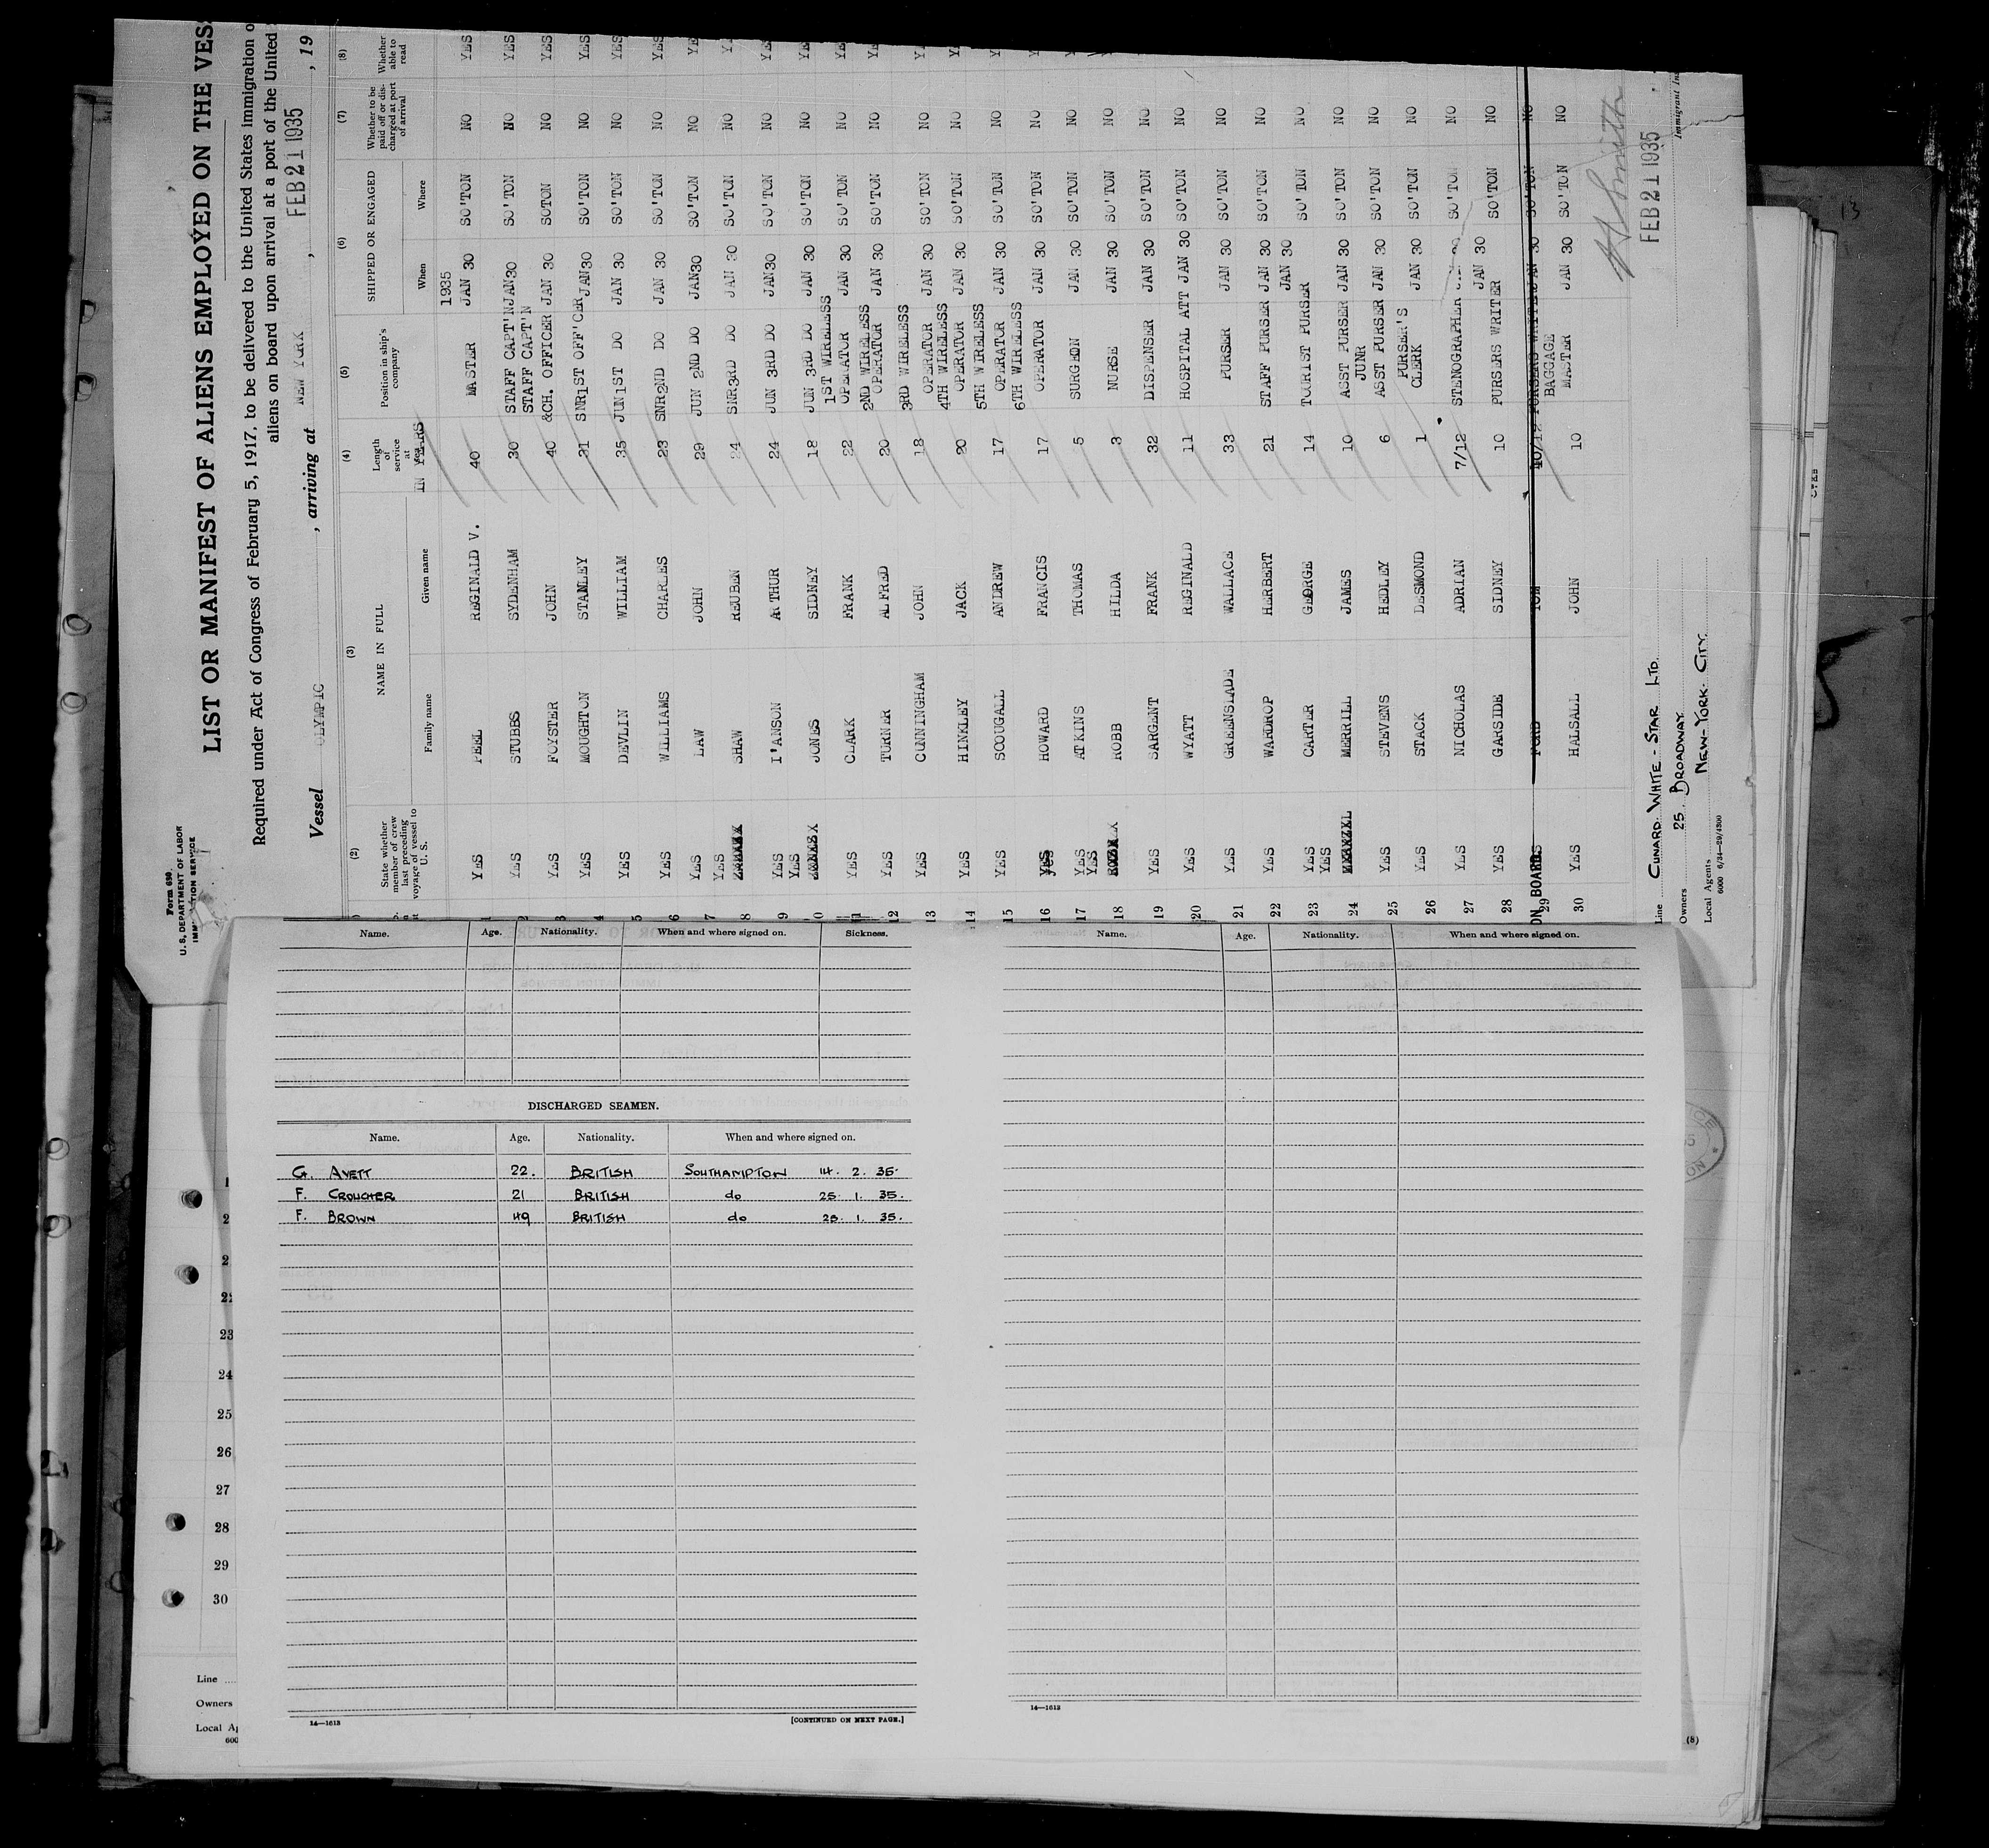 Form 689
U. S. DEPARTMENT OF LABOR
LIST OR MANIFEST OF ALIENS EMPLOYED ON THE VES
Required under Act of Congress of February 5, 1917, to be delivered to the United States immigration o
aliens on board upon arrival at a port of the United
Vessel OLYMPIC , arriving at NEW YORK , FEB 21 1935 , 19
(2) (3) (4) (5) (6) (7) (8)
State whether member of crew last preceding voyage of vessel to U. S. NAME IN FULL Length of service at sea Position in ship's company SHIPPED OR ENGAGED Whether to be paid off or discharged at port of arrival Whether able to read
Family name Given name IN YEARS When Where
1935
1 YES PEEL REGINALD V. 40 MASTER JAN 30 SO'TON NO YES
2 YES STUBBS SYDENHAM 30 STAFF CAPT'N JAN30 SO'TON NO YES
3 YES FOYSTER JOHN 40 STAFF CAPT'N &CH. OFFICER JAN 30 SOTON NO YES
4 YES MOUGHTON STANLEY 31 SNR1ST OFF'CER JAN30 SO'TON NO YES
5 YES DEVLIN WILLIAM 35 JUN1ST DO JAN 30 SO'TON NO YES
6 YES WILLIAMS CHARLES 23 SNR2ND DO JAN 30 SO'TON NO YES
7 YES LAW JOHN 29 JUN 2ND DO JAN30 SO'TON NO YE
8 YES SHAW REUBEN 24 SNR3RD DO JAN 30 SO'TON NO Y
9 YES I'ANSON ARTHUR 24 JUN 3RD DO JAN30 SO'TON NO YE
10 YES JONES SIDNEY 18 JUN 3RD DO JAN 30 SO'TON NO YE
11 YES CLARK FRANK 22 1ST WIRELESS OPERATOR JAN 30 SO'TON NO YE
12 YES TURNER ALFRED 20 2ND WIRELESS OPERATOR JAN 30 SO'TON NO YE
13 YES CUNNINGHAM JOHN 18 3RD WIRELESS OPERATOR JAN 30 SO'TON NO Y
14 YES HINKLEY JACK 20 4TH WIRELESS OPERATOR JAN 30 SO'TON NO Y
15 YES SCOUGALL ANDREW 17 5TH WIRELESS OPERATOR JAN 30 SO'TON NO Y
16 YES HOWARD FRANCIS 17 6TH WIRELESS OPERATOR JAN 30 SO'TON NO
17 YES ATKINS THOMAS 5 SURGEON JAN 30 SO'TON NO
18 YES ROBB HILDA 3 NURSE JAN 30 SO'TON NO
19 YES SARGENT FRANK 32 DISPENSER JAN 30 SO'TON NO
20 YES WYATT REGINALD 11 HOSPITAL ATT JAN 30 SO'TON NO
21 YES GREENSLADE WALLACE 33 PURSER JAN 30 SO'TON NO
22 YES WARDROP HERBERT 21 STAFF PURSER JAN 30 SO'TON NO
23 YES CARTER GEORGE 14 TOURIST PURSER JAN 30 SO'TON NO
24 YES MERRILL JAMES 10 ASST PURSER JAN 30 SO'TON NO
25 YES STEVENS HEDLEY 6 JUNR ASST PURSER JAN 30 SO'TON NO
26 YES STACK DESMOND 1 PURSER'S CLERK JAN 30 SO'TON NO
27 YES NICHOLAS ADRIAN 7/12 STENOGRAPHER JAN 30 SO'TON NO
28 YES GARSIDE SIDNEY 10 PURSERS WRITER JAN 30 SO'TON NO
ON BOARD.
29 FORD TOM 10/12 PURSERS WRITER JAN 30 SO'TON NO
30 YES HALSALL JOHN 10 BAGGAGE MASTER JAN 30 SO'TON NO
Line CUNARD WHITE - STAR LTD. FEB 21 1935
Owners 25, BROADWAY
Local Agents NEW-YORK CITY.
6000 6/34—29/4300
Name. Age. Nationality. When and where signed on. Sickness.
DISCHARGED SEAMEN.
Name. Age. Nationality. When and where signed on.
G. AVETT 22. BRITISH SOUTHAMPTON 14. 2. 35.
F. CROUCHER 21 BRITISH do 25. 1. 35.
F. BROWN 49 BRITISH do 25. 1. 35.
14—1613
[CONTINUED ON NEXT PAGE.]
Name. Age. Nationality. When and where signed on.
14—1613
(8)
23
24
25
26
27
28
29
30
Line
Owners